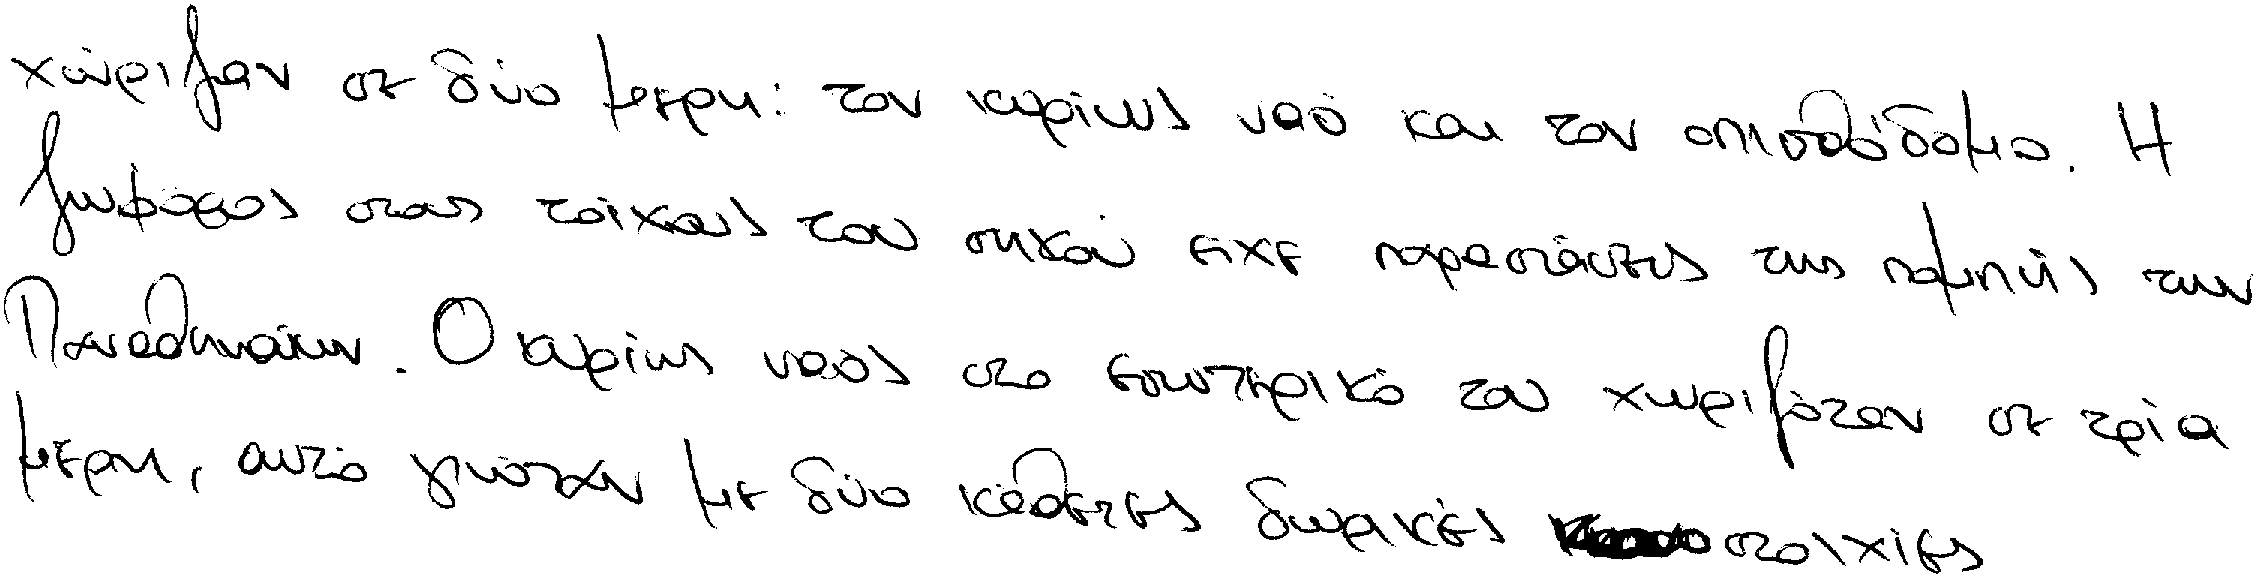 χώριζαν σε δύο μερη: τον κυρίως ναό και τον οπισθόδομο. Η
ζωφόρος στους τοίχους του σηκού ειχε παραστάσεις της πομπής των
Παναθηναίων. Ο κυρίως ναός στο εσωτερικό του χωριζόταν σε τρία
μερη, αυτό γινόταν με δύο κάθετες δωρικές στοιχίες